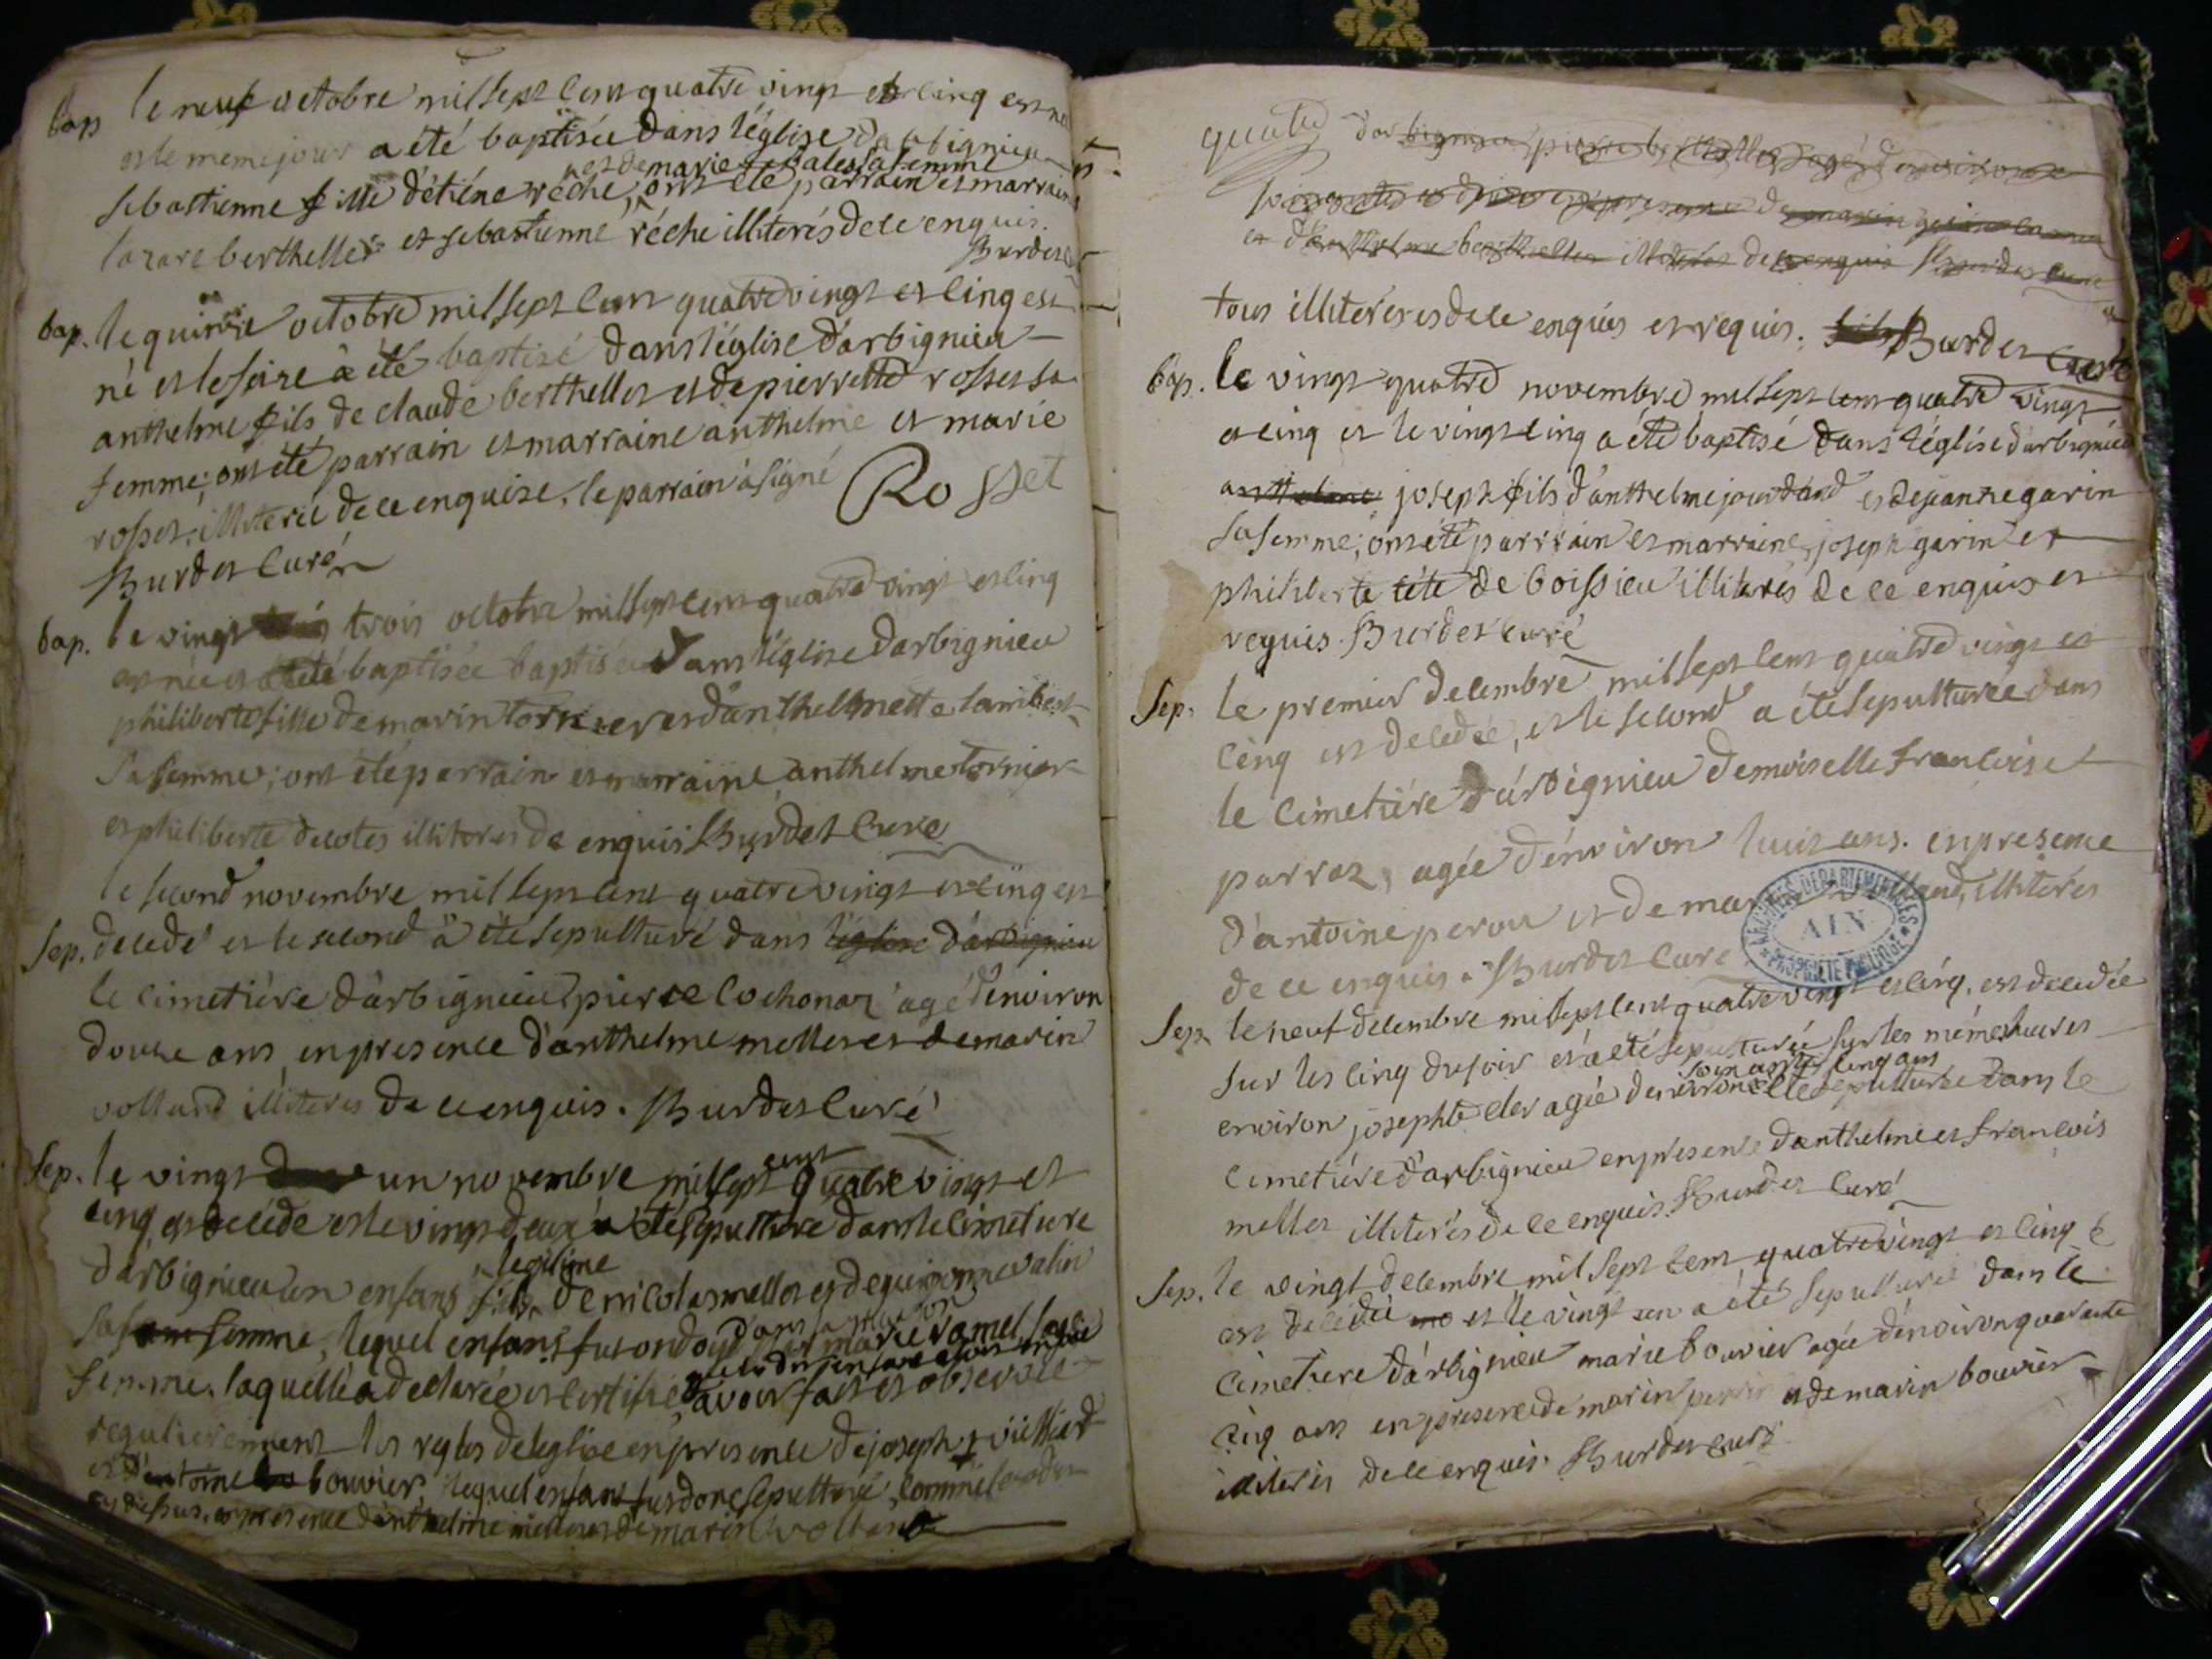 bap le neuf octobre mil sept cent quatre vingt et cinq est né
et le meme jour a été baptisée dans l'église d'arbignieu
et de marie sa femme
sebastienne fille d'étiéne réche, ont été parrain et marraine
lazare berthellet et sebastienne réche illiterés de ce enquis.
Burdet
bap. le quinzie octobre mil sept cent quatre vingt et cinq est
né et le soire a été baptisé dans l'église d'arbignieu
anthelme fils de claude berthellet et de pierrette rosset sa
femme; ont été parrain et marraine anthelme et marie
rosset, illiterée de ce enquise, le parrain a signé Rosset
Burdet Curé
bap. le vingt trois octobre mil sept cent quatre vingt et cinq
est née et a été baptisée baptisée dans l'église d'arbignieu
philiberte fille de marin tornier et d'anthelmette lambert
sa femme; ont été parrain et marraine anthelme tornier
et philiberte decotes illiteres de enquis Burdet Curé
le second novembre mil sept cent quatre vingt et cinq est
Sep. decedé et le second a été sepulturé dans l'église d'arbignieu
le cimetiére d'arbignieu pierre cochonaz agé d'environ
douze ans, en presence d'anthelme mellet et de marin
volland illiteres de ce enquis. Burdet Curé
Sep. le vingt un novembre mil sept cent quatre vingt et
cinq est decédé et le vingt deux a été sepulturé dans le cimetiere
d'arbignieu un enfant fils legitime de nicolas mellet et de valin
sa femme, lequel enfant fut ondoyé dans la maison par marie ramel sage
femme, laquelle a declarée et certifié avoir fait et observée
regulierement les regles de l'eglise en presence de joseph
et d'antoine bouvier lequel enfant fut donc sepulturé, comme
cy dessus, en presence d'anthelme mellet et de marin volland
quatre d'arbignieu pierre berthellet agé d'environ
en presence de marin
et d'anthelme berthellet illiteres de ce enquis Burdet curé
tous illiterés et de ce enquis et requis. Burdet Curé
bap. le vingt quatre novembre mil sept cent quatre vingt
et cinq et le vingt cinq a été baptisé dans l'église d'arbignieu
anthelme joseph fils d'anthelme jourdand et de jeanne garin
sa femme; ont été parrain et marraine, joseph garin et
philiberte téte de boissieu illiterés de ce enquis et
requis Burdet curé
Sep. le premier decembre mil sept cent quatre vingt et
cinq est decedée, et le second a été sepulturée dans
le cimetiére d'arbignieu demoiselle francoise
parraz, agée d'environ huit ans. en presence
d'antoine perou et de illiterés
de ce enquis. Burdet Curé
ARCHIVES DEPARTEMENTALES
AIN
PROPRIETE PUBLIQUE
Sep. le neuf decembre mil sept cent quatre vingt et cinq, est decedée
sur les cinq du soir et a été sepulturée sur les mémes heures
soixante cinq ans
environ josephte clet agée d'environ et sepulturée dans le
cimetiére d'arbignieu en presence d'anthelme et francois
mellet illiterés de ce enquis. Burdet Curé
Sep. le vingt decembre mil sept cent quatre vingt et cinq
est decédée et le vingt un a été sepulturée dans le
cimetiere d'arbignieu marie bouvier agée d'environ quarante
cinq ans en presence de marin perrin et de marin bouvier
illiterés de ce enquis. Burdet curé